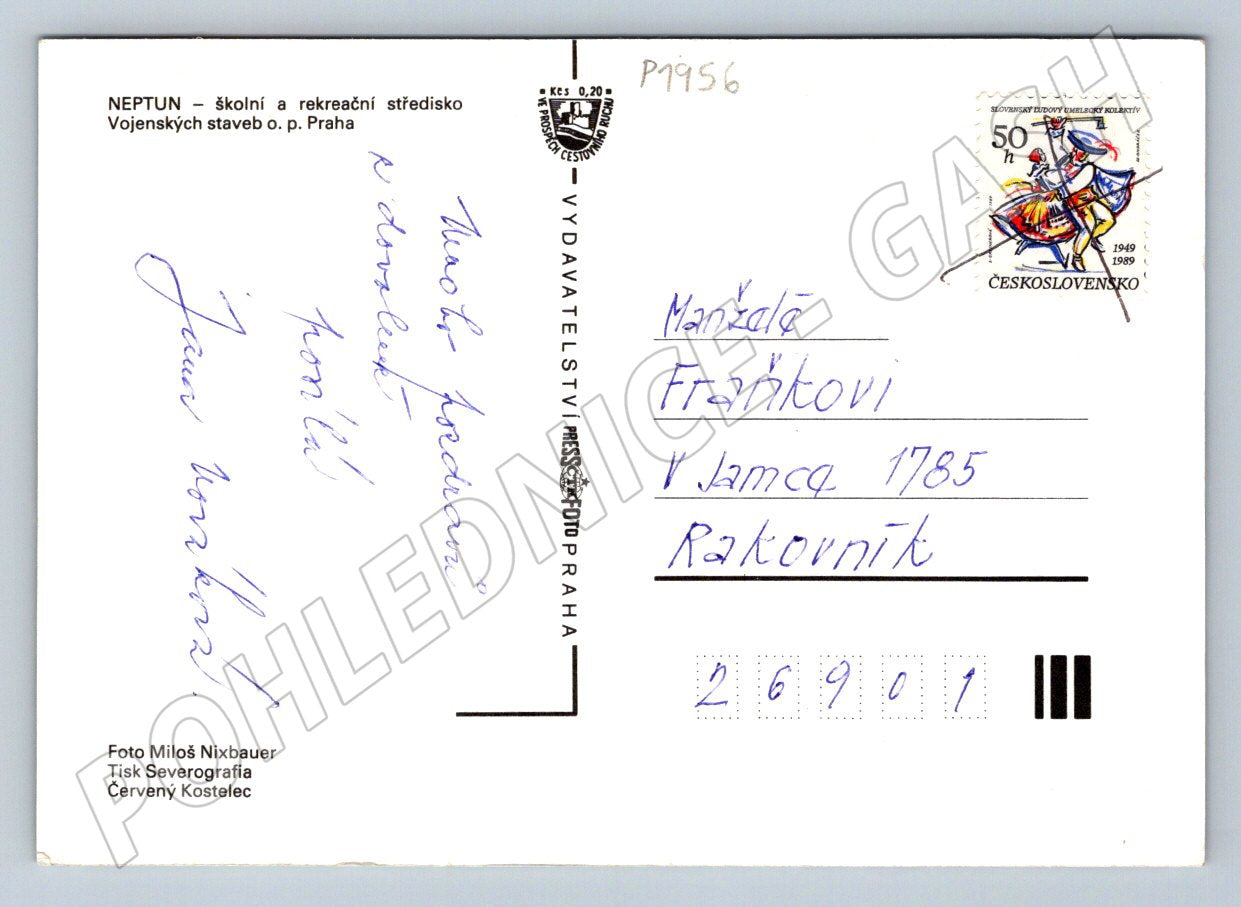 NEPTUN – školní a rekreační středisko
Vojenských staveb o. p. Praha
Mnoho pozdravů
z dovolené
posílá
Jana Horáková
Foto Miloš Nixbauer
Tisk Severografia
Červený Kostelec
Kčs 0,20
VE PROSPĚCH CESTOVNÍHO RUCHU
VYDAVATELSTVÍ PRESSFOTO PRAHA
ČTK
P1956
SLOVENSKÝ ĽUDOVÝ UMELECKÝ KOLEKTÍV
50 h
1949
1989
ČESKOSLOVENSKO
Manželé
Fraňkovi
V Jamce 1785
Rakovník
26901
POHLEDNICE - GASH